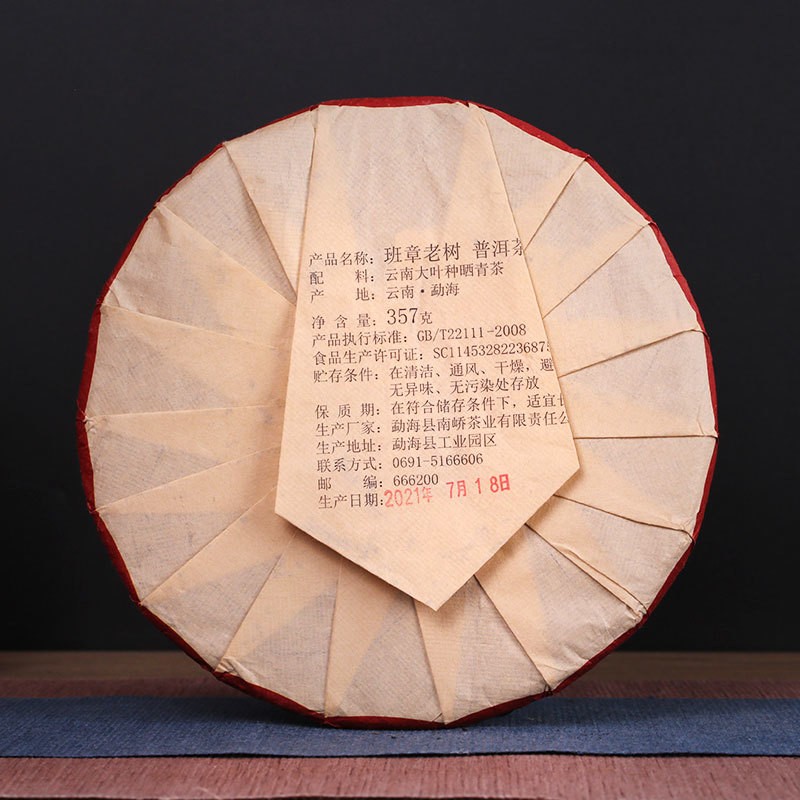 产品名称：班章老树 普洱茶
配 料：云南大叶种晒青茶
产 地：云南·勐海
净 含 量：357克
产品执行标准：GB/T22111-2008
食品生产许可证：SC11453282236875
贮存条件：在清洁、通风、干燥，避
无异味、无污染处存放
保 质 期：在符合储存条件下，适宜
生产厂家：勐海县南峤茶业有限责任公
生产地址：勐海县工业园区
联系方式：0691-5166606
邮 编：666200
生产日期：2021年 7月18日